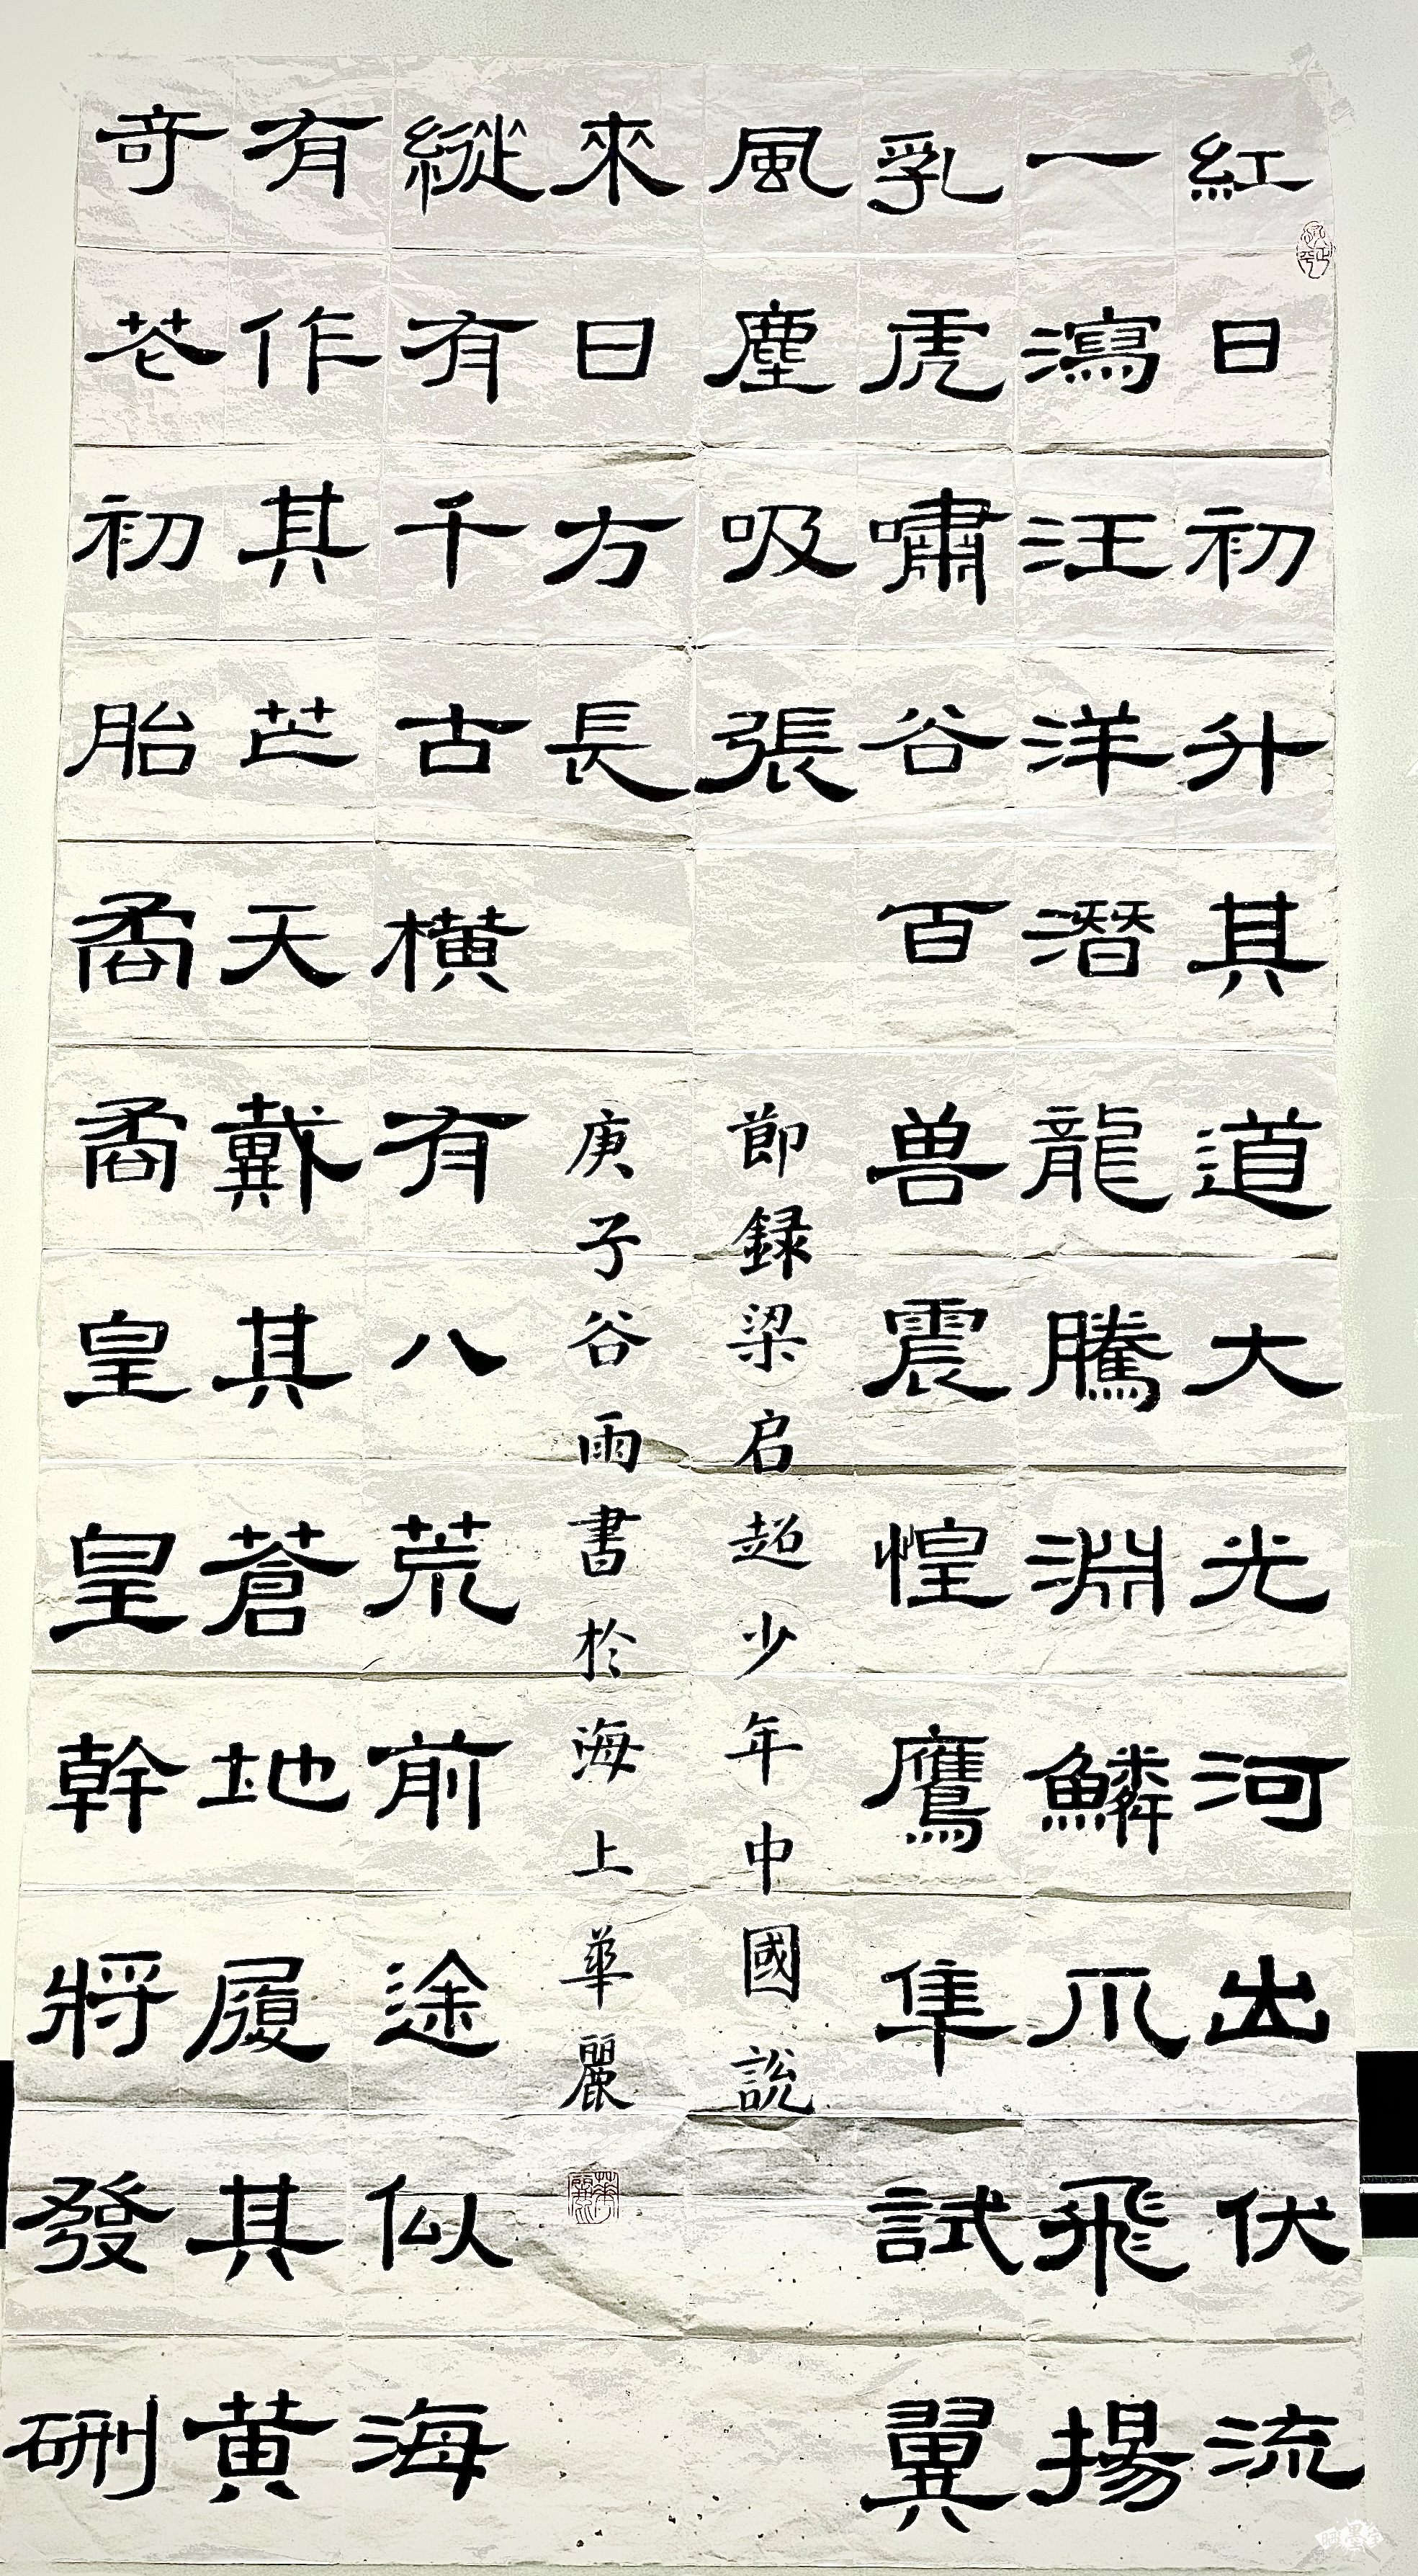 紅日初升其道大光河出伏流
一瀉汪洋潛龍騰淵鱗爪飛揚
乳虎嘯谷百兽震惶鷹隼試翼
風塵吸張
奇花初胎矞矞皇皇幹將發硎
有作其芒天戴其蒼地履其黄
縱有千古横有八荒前途似海
來日方長
節録梁启超少年中國説
庚子谷雨書於海上華麗
華麗